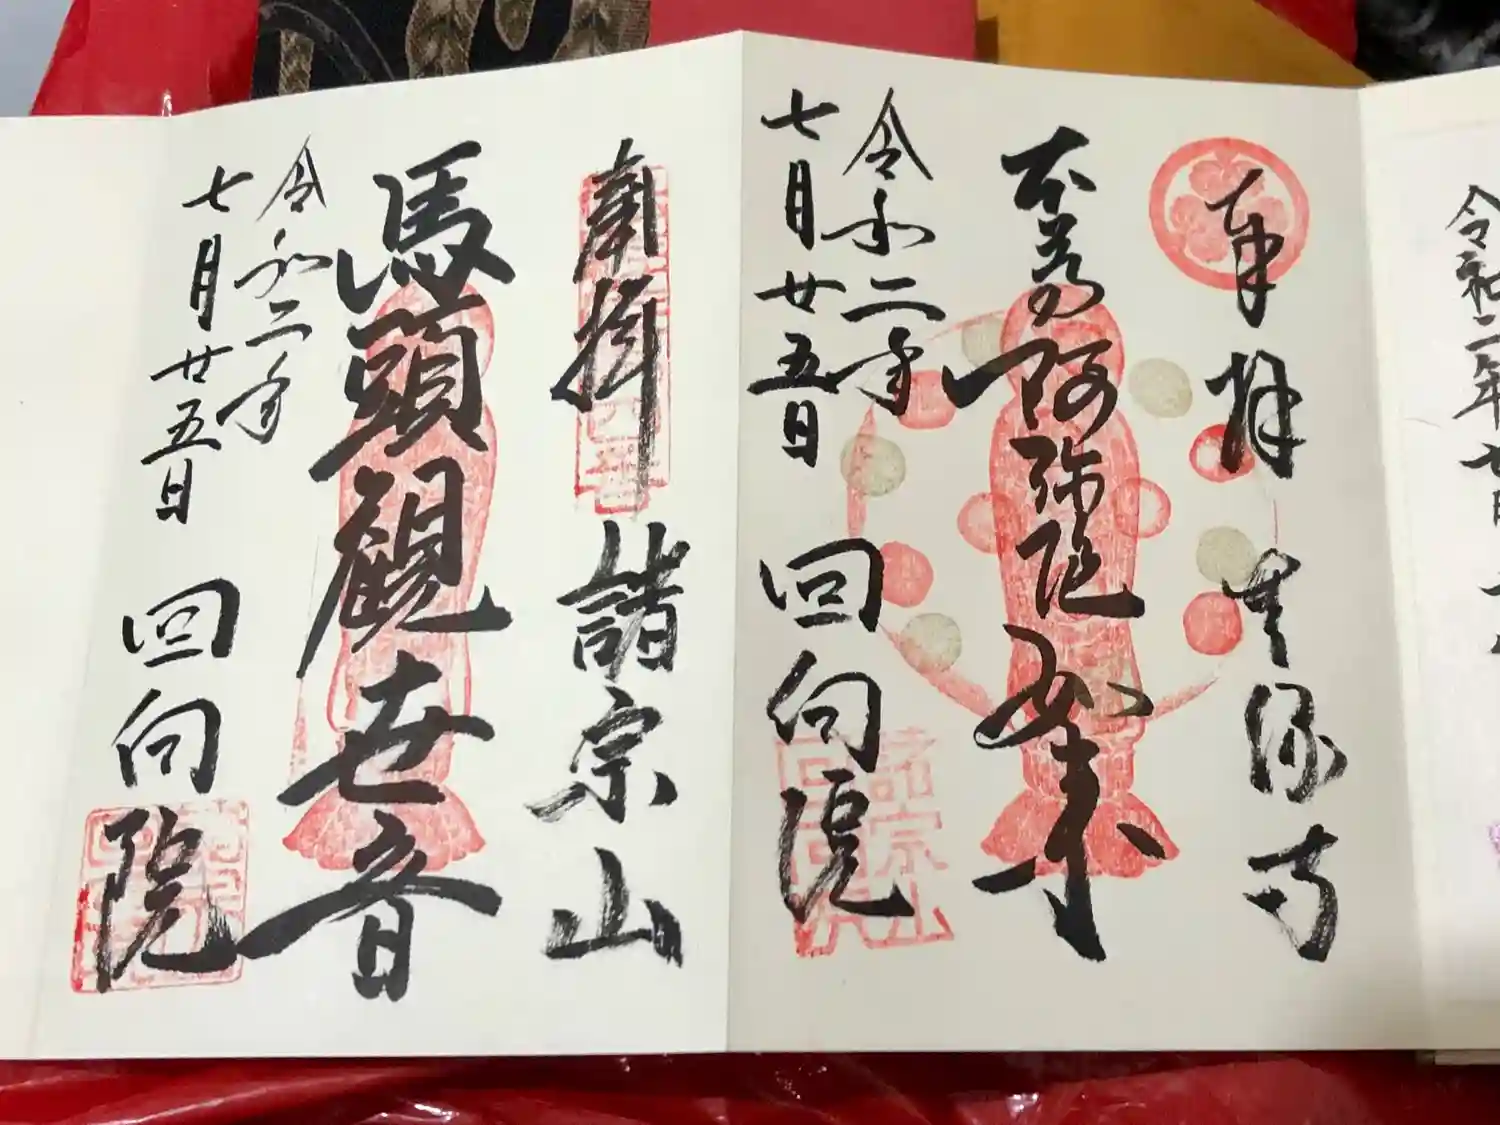 令和二年
奉拝
無縁寺
本尊阿弥陀如来
令和二年
七月廿五日
回向院
諸宗山
奉拝
諸宗山
馬頭観世音
令和二年
七月廿五日
回向院